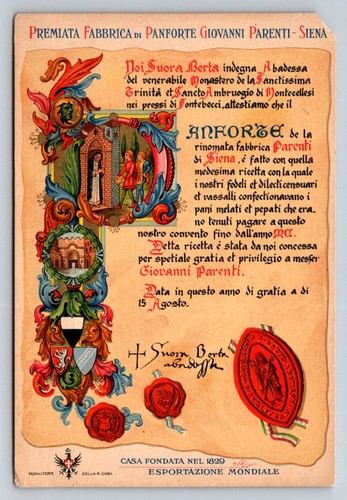 PREMIATA FABBRICA DI PANFORTE GIOVANNI PARENTI - SIENA
Noi Suora Berta indegna Abadessa
del venerabile Monastero de la Sanctissima
Trinità et Sancto Ambruogio di Montecellesi
nei pressi di Fontebecci, attestiamo che il
PANFORTE de la
rinomata fabbrica Parenti
di Siena, è fatto con quella
medesima ricetta con la quale
i nostri fedeli et dilecti censuari
et vassalli confectionavano i
pani melati et pepati che era-
no tenuti pagare a questo
nostro convento fino dall'anno MCC.
Detta ricetta è stata da noi concessa
per spetiale gratia et privilegio a messer
Giovanni Parenti.
Data in questo anno di gratia a dì
15 Agosto.
+ Suora Berta
abadessa
CASA FONDATA NEL 1829
FORNITORE DELLA R. CASA
ESPORTAZIONE MONDIALE